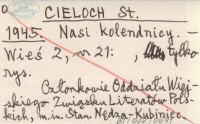 o. CIELOCH St.
1945. Nasi kolendnicy. -
Wieś 2, nr 21: , tylko
rys.
Członkowie Oddziału Wiej-
skiego Związku Literatów Pols-
kich, m. in. Stan. Nędza-Kubiniec.